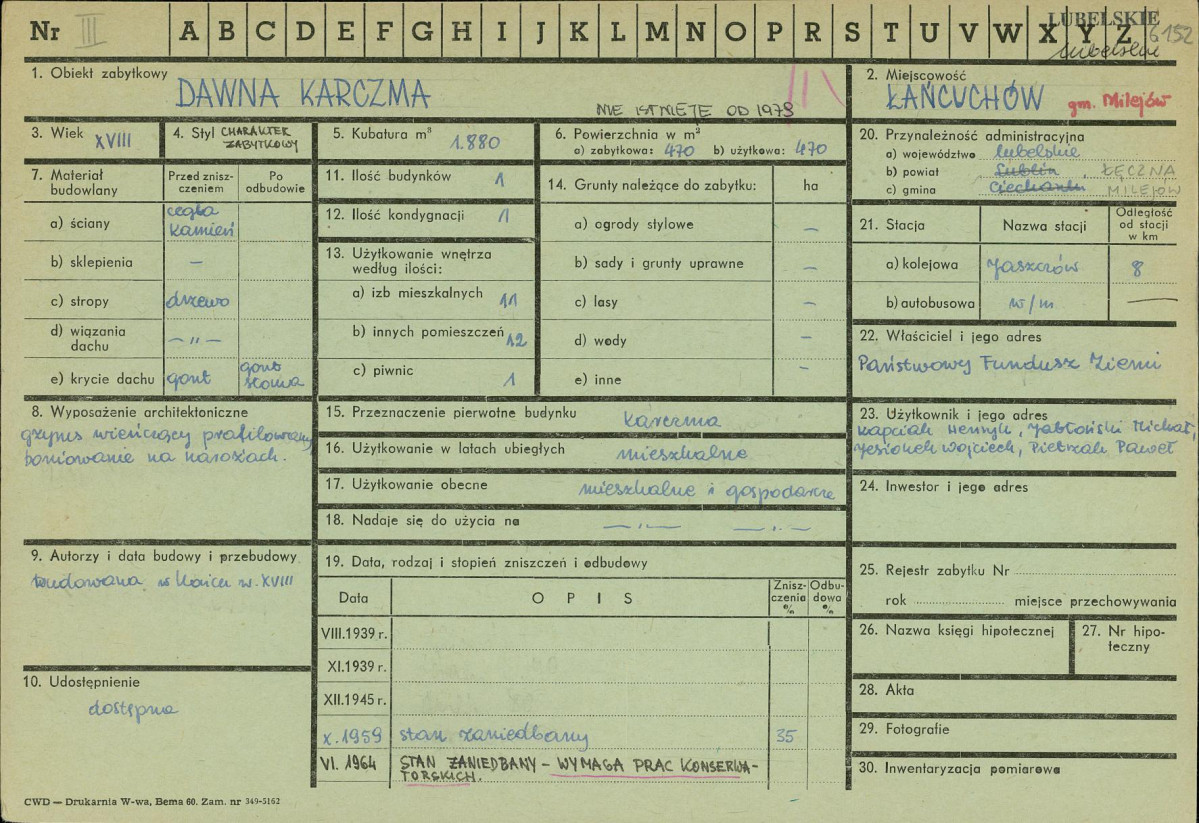 Nr III A B C D E F G H I J K L M N O P R S T U V W X Y Z
LUBELSKIE
lubelskie
6152
1. Obiekt zabytkowy
DAWNA KARCZMA
NIE ISTNIEJE OD 1973
2. Miejscowość
ŁAŃCUCHÓW gm. Milejów
3. Wiek XVIII
4. Styl CHARAKTER
ZABYTKOWY
5. Kubatura m³
1.880
6. Powierzchnia w m²
a) zabytkowa: 470 b) użytkowa: 470
7. Materiał
budowlany
Przed znisz-
czeniem
Po
odbudowie
a) ściany cegła
kamień
b) sklepienia —
c) stropy drzewo
d) wiązania
dachu — „ —
e) krycie dachu gont gont
słoma
8. Wyposażenie architektoniczne
gzyms wieńczący profilowany,
boniowanie na narożach.
9. Autorzy i data budowy i przebudowy
budowana w końcu w. XVIII
10. Udostępnienie
dostępna
11. Ilość budynków 1
12. Ilość kondygnacji 1
13. Użytkowanie wnętrza
według ilości:
a) izb mieszkalnych 11
b) innych pomieszczeń 12
c) piwnic 1
14. Grunty należące do zabytku: ha
a) ogrody stylowe —
b) sady i grunty uprawne —
c) lasy —
d) wody —
e) inne —
15. Przeznaczenie pierwotne budynku karczma
16. Użytkowanie w latach ubiegłych mieszkalne
17. Użytkowanie obecne mieszkalne i gospodarcze
18. Nadaje się do użycia na — „ — — „ —
19. Data, rodzaj i stopień zniszczeń i odbudowy
Data O P I S Znisz-
czenia
%
Odbu-
dowa
%
VIII.1939 r.
XI.1939 r.
XII.1945 r.
X.1959 stan zaniedbany 35
VI. 1964 STAN ZANIEDBANY - WYMAGA PRAC KONSERWA-
TORSKICH.
20. Przynależność administracyjna
a) województwo lubelskie
b) powiat Lublin ŁĘCZNA
c) gmina Ciechanki MILEJÓW
21. Stacja Nazwa stacji Odległość
od stacji
w km
a) kolejowa Jaszczów 8
b) autobusowa w/m —
22. Właściciel i jego adres
Państwowy Fundusz Ziemi
23. Użytkownik i jego adres
Kapciak Henryk, Jabłoński Michał,
Jesionek Wojciech, Pietrzak Paweł
24. Inwestor i jego adres
25. Rejestr zabytku Nr
rok miejsce przechowywania
26. Nazwa księgi hipotecznej
27. Nr hipo-
teczny
28. Akta
29. Fotografie
30. Inwentaryzacja pomiarowa
CWD — Drukarnia W-wa, Bema 60. Zam. nr 349-5162